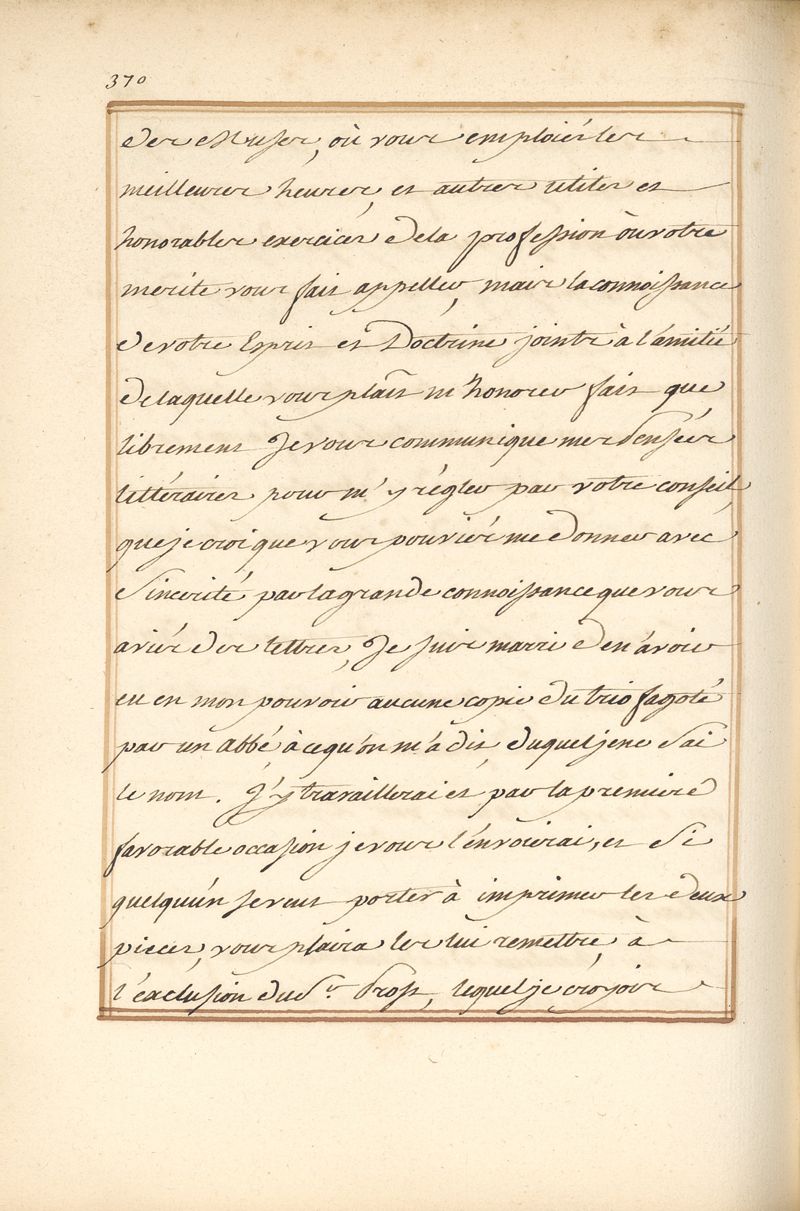 370
des Muses, où vous emploiés les
meilleures heures, et autres utiles et
honorables exercices de la profession où votre
merite vous fait appeller, mais la connoissance
de votre Esprit et Doctrine jointe à l'amitié
de laquelle vous plaît m'honorer fait que
librement Je vous communique mes Pensées
littéraires pour m'y régler par votre conseil,
que je croi que vous pourriés me donner avec
Sincerité par la grande connoissance que vous
aviés des lettres, Je suis marri d'en avoir
eu en mon pouvoir aucune copie du trio fagoté
par un abbé à ce qu'on m'a dit, duquel je ne Sai
le nom. J'y travaillerai et par la premiere
favorable occasion je vous l'envoierai, et Si
quelqu'un se veut porter à imprimer les deux
pieces, vous plaira les lui remettre, à
l'exclusion du Sr. Prost, lequel je croyois